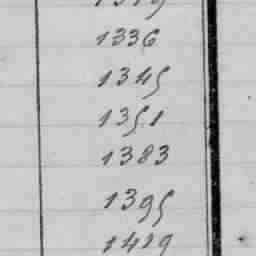 1336
1345
1351
1383
1395
1429